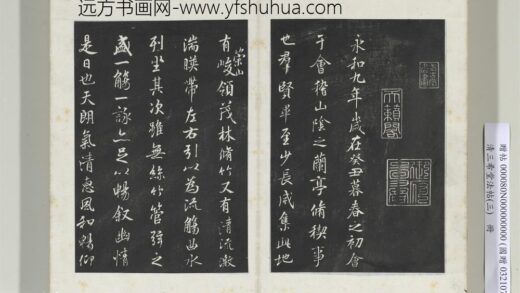 远方书画网-www.yfshuhua.com
永和九年歲在癸丑暮春之初會
于會稽山陰之蘭亭脩稧事
也羣賢畢至少長咸集此地
有崇山峻領茂林脩竹又有清流激
湍暎帶左右引以為流觴曲水
列坐其次雖無絲竹管弦之
盛一觴一詠亦足以暢敘幽情
是日也天朗氣清惠風和暢仰
天籟閣
贈帖 000080N000000000 (國贈 032107
清三希堂法帖(三) 冊